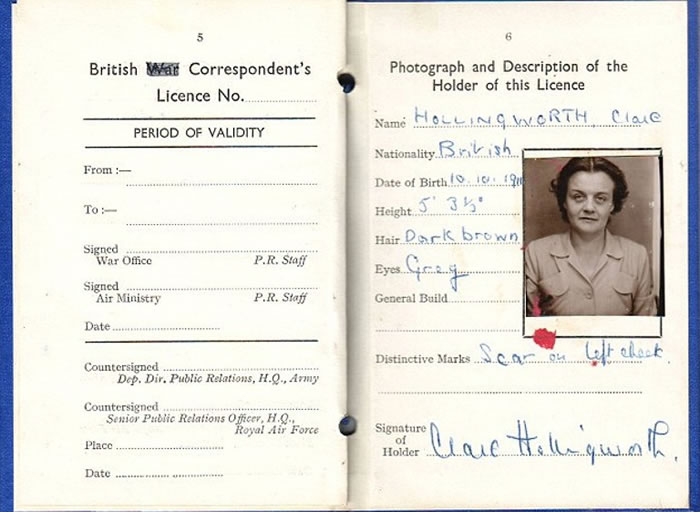 5
British War Correspondent's
Licence No.
PERIOD OF VALIDITY
From :—
To :—
Signed
War Office P.R. Staff
Signed
Air Ministry P.R. Staff
Date
Countersigned
Dep. Dir. Public Relations, H.Q., Army
Countersigned
Senior Public Relations Officer, H.Q.,
Royal Air Force
Place
Date
6
Photograph and Description of the
Holder of this Licence
Name HOLLINGWORTH, Clare
Nationality British
Date of Birth 10. 10. 191
Height 5' 3½"
Hair Dark brown
Eyes Grey
General Build
Distinctive Marks Scar on left cheek.
Signature
of
Holder
Clare Hollingworth.